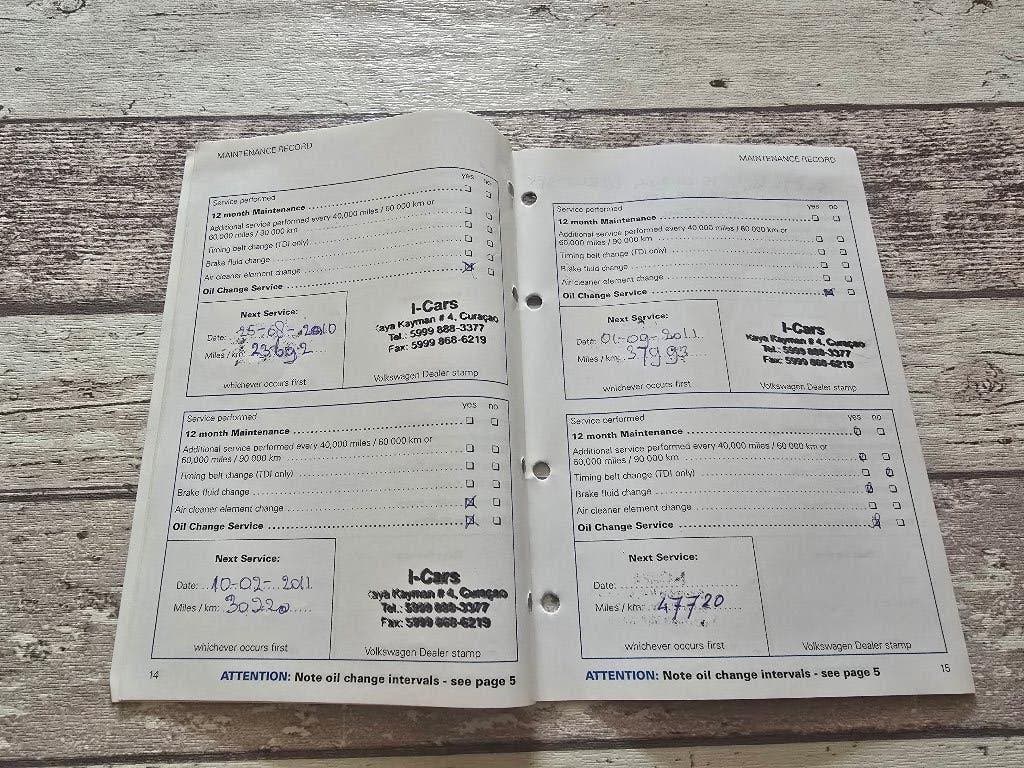 MAINTENANCE RECORD
yes no
Service performed
12 month Maintenance
Additional service performed every 40,000 miles / 60 000 km or
60,000 miles / 90 000 km
Timing belt change (TDI only)
Brake fluid change
Air cleaner element change
Oil Change Service
Next Service:
Date: 25-08-2010
Miles / km: 23692
whichever occurs first
I-Cars
Kaya Kayman # 4, Curaçao
Tel.: 5999 888-3377
Fax: 5999 868-6219
Volkswagen Dealer stamp
yes no
Service performed
12 month Maintenance
Additional service performed every 40,000 miles / 60 000 km or
60,000 miles / 90 000 km
Timing belt change (TDI only)
Brake fluid change
Air cleaner element change
Oil Change Service
Next Service:
Date: 10-02-2011
Miles / km: 30220
whichever occurs first
I-Cars
Kaya Kayman # 4, Curaçao
Tel.: 5999 888-3377
Fax: 5999 868-6219
Volkswagen Dealer stamp
14
ATTENTION: Note oil change intervals - see page 5
MAINTENANCE RECORD
yes no
Service performed
12 month Maintenance
Additional service performed every 40,000 miles / 60 000 km or
60,000 miles / 90 000 km
Timing belt change (TDI only)
Brake fluid change
Air cleaner element change
Oil Change Service
Next Service:
Date: 01-09-2011
Miles / km: 37997
whichever occurs first
I-Cars
Kaya Kayman # 4, Curaçao
Tel.: 5999 888-3377
Fax: 5999 868-6219
Volkswagen Dealer stamp
yes no
Service performed
12 month Maintenance
Additional service performed every 40,000 miles / 60 000 km or
60,000 miles / 90 000 km
Timing belt change (TDI only)
Brake fluid change
Air cleaner element change
Oil Change Service
Next Service:
Date:
Miles / km: 47720
whichever occurs first
Volkswagen Dealer stamp
ATTENTION: Note oil change intervals - see page 5
15